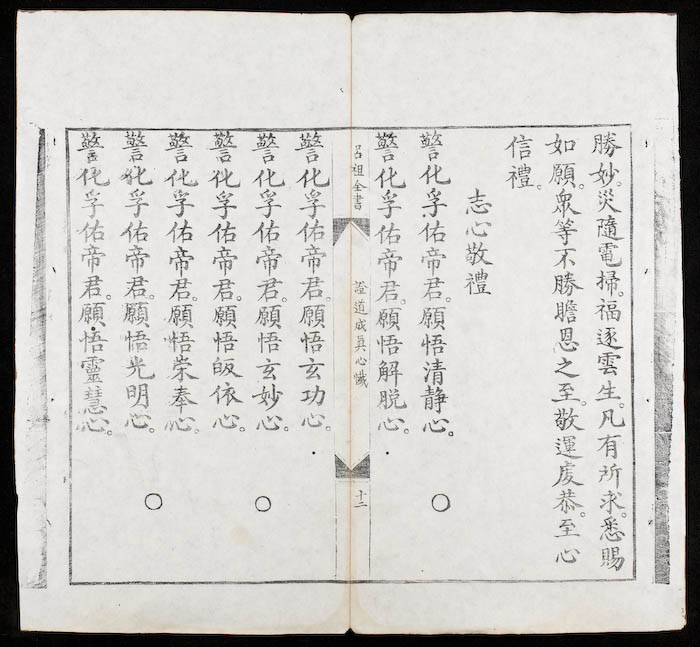 勝妙。災隨電掃。福逐雲生。凡有所求。悉賜
如願。衆等不勝瞻恩之至。敬運虔恭。至心
信禮。
志心敬禮
警化孚佑帝君。願悟清静心。〇
警化孚佑帝君。願悟解脫心。
呂祖全書 證道成真心懺 十二
警化孚佑帝君。願悟玄功心。
警化孚佑帝君。願悟玄妙心。〇
警化孚佑帝君。願悟皈依心。
警化孚佑帝君。願悟崇奉心。
警化孚佑帝君。願悟光明心。〇
警化孚佑帝君。願悟靈慧心。